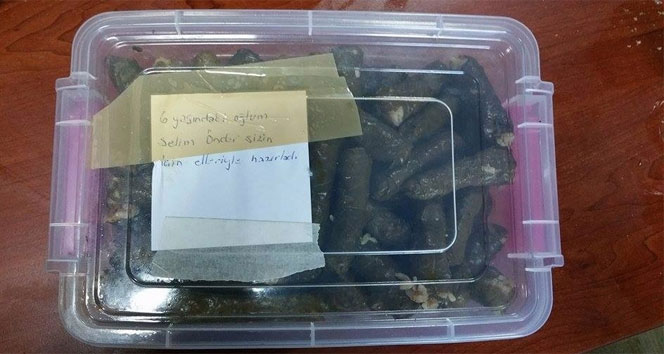 6 yaşındaki oğlum
Selim Önder sizin
için elleriyle hazırladı.